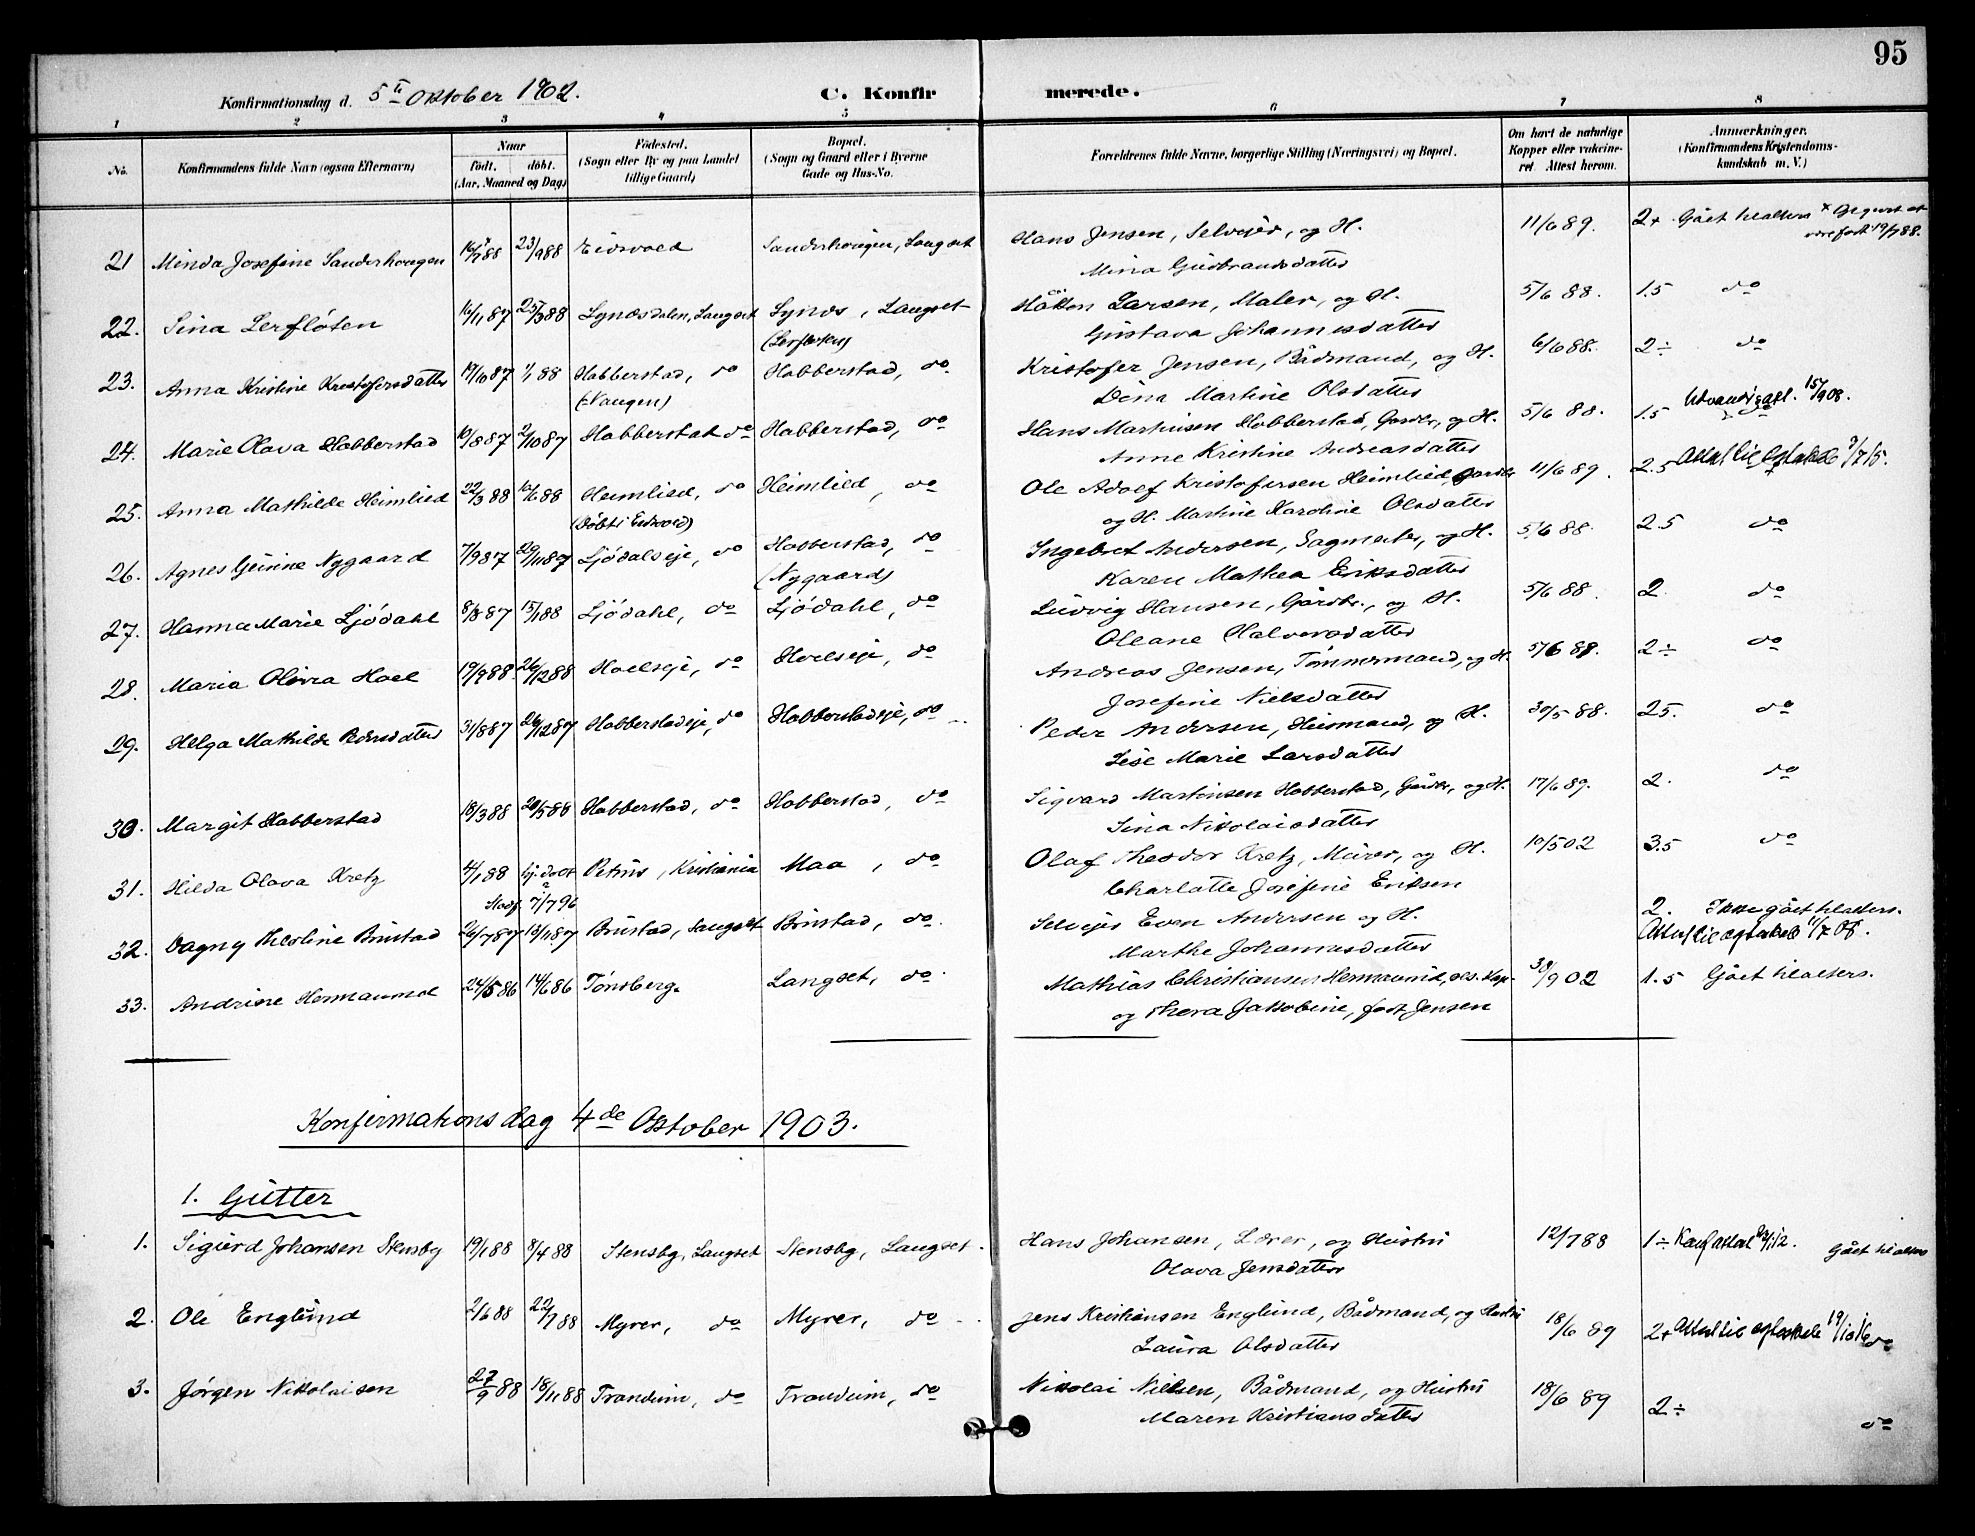 95
Konfirmationsdag d. 5te Oktober 1902. C. Konfirmerede.
1 2 3 4 5 6 7 8
No. Konfirmandens fulde Navn (ogsaa Efternavn) Naar født. døbt. (Aar, Maaned og Dag) Fødested. (Sogn eller By og paa Landet tillige Gaard) Bopæl. (Sogn og Gaard eller i Byerne Gade og Hus-No. Forældrenes fulde Navne, borgerlige Stilling (Næringsvei) og Bopæl. Om havt de naturlige Kopper eller vakcineret. Attest herom. Anmærkninger. (Konfirmandens Kristendomskundskab m. V.)
21 Minda Josefine Sanderhougen 16/7 88 23/9 88 Eidsvold Sanderhougen, Langset Hans Jensen, Selveier, og H. 11/6 89. 2+ Gået til alters
Mina Gudbrandsdatter
22. Sina Lerfløten 16/11 87 25/3 88 Lynæsdalen, Langset Lynæs, Langset Håkon Larsen, Maler, og H. 5/6 88. 1.5 do
(Lerfløten) Gustava Johannesdatter
23. Anna Kristine Kristofersdatter 17/10 87 1/1 88 Habberstad, do Habberstad, do Kristofer Jensen, Bådmand, og H. 6/6 88. 2÷ do
(Haugen) Dina Martine Olsdatter
24. Marie Olava Habberstad 10/8 87 2/10 87 Habberstad do Habberstad, do Hans Martinsen Habberstad, Gardbr, og H. 5/6 88. 1.5 Udvandr.attest. 15/9 08. do
Anne Kristine Andreasdatter
25. Anna Mathilde Heimlied 22/3 88 10/6 88 Heimlied, do Heimlied, do Ole Adolf Kristofersen Heimlied, Gardbr 11/6 89. 2.5 Attest til ægteskab 9/7 15.
(Døbt i Eidsvold) og H. Martine Karoline Olsdatter
26. Agnes Gurine Nygaard 7/9 87 20/11 87 Ljødalseje, do Habberstad, do Ingebret Andersen, Sagmester, og H. 5/6 88. 2.5 do
(Nygaard) Karen Mathea Eriksdatter
27. Hanna Marie Ljødahl 8/8 87 15/1 88 Ljødahl, do Ljødahl, do Ludvig Hansen, Gårdbr., og H. 5/6 88. 2. do
Oleane Halvorsdatter
28. Maria Olivia Hoel 19/9 88. 26/12 88 Hoelseje, do Hoelseje, do Andreas Jensen, Tømmermand, og H. 5/6 88. 2÷ do
Josefine Nielsdatter
29. Helga Mathilde Pedersdatter 31/8 87 26/12 87 Habberstadeje, do Habberstadeje, do Peder Andersen, Husmand, og H. 30/5 88. 2.5. do
Lise Marie Larsdatter
30. Margit Habberstad 18/3 88 20/5 88 Habberstad, do Habberstad, do Sigvard Martinsen Habberstad, Gårdbr, og H. 17/6 89. 2. do
Sina Nikolaisdatter
31. Hilda Olava Kretz 4/1 88 hj.døbt Petrus, Kristiania Maa, do Olaf Theodor Kretz, Murer, og H. 10/5 02 3.5 do
Stadf. 7/7 96 Charlotte Josefine Eriksen
32. Dagny Theoline Brustad 26/7 87 13/11 87 Brustad, Langset Brustad, do. Selvejer Even Andersen og H. 2. Ikke gået til alters.
Marthe Johannesdatter Attest til ægteskab 11/7 08.
33. Andrine Hermaunsd 24/5 86 14/6 86 Tønsberg. Langset, do. Mathias Christiansen 30/9 02 1.5 Gået til alters.
og Thora Jakobine, født Jensen
Konfirmationsdag 4de Oktober 1903.
1. Gutter
1. Sigurd Johansen Stensby 19/1 88 8/4 88 Stensby, Langset Stensby, Langset. Hans Johansen, Lærer, og Hustru 12/7 88 1÷ Konf.attest Gået til alters
Olava Jensdatter
2. Ole Englund 2/6 88 22/7 88 Myrer, do Myrer, do Jens Kristiansen Englund, Bådmand, og Hustru 18/6 89 2+ Attest til ægteskab 19/10 16 do
Laura Olsdatter
3. Jørgen Nikolaisen 27/9 88 18/11 88 Trandum, do Trandum, do Nikolai Nielsen, Bådmand, og Hustru 18/6 89 2÷ do
Maren Kristiansdatter